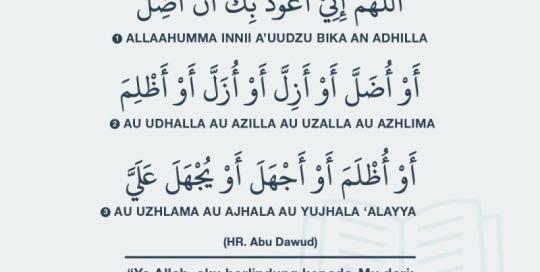 اللَّهُمَّ إِنِّي أَعُوذُ بِكَ أَنْ أَضِلَّ
1 ALLAAHUMMA INNII A'UUDZU BIKA AN ADHILLA
أَوْ أُضَلَّ أَوْ أَزِلَّ أَوْ أُزَلَّ أَوْ أَظْلِمَ
2 AU UDHALLA AU AZILLA AU UZALLA AU AZHLIMA
أَوْ أُظْلَمَ أَوْ أَجْهَلَ أَوْ يُجْهَلَ عَلَيَّ
3 AU UZHLAMA AU AJHALA AU YUJHALA ‘ALAYYA
(HR. Abu Dawud)
“Ya Allah, aku berlindung kepada-Mu dari: